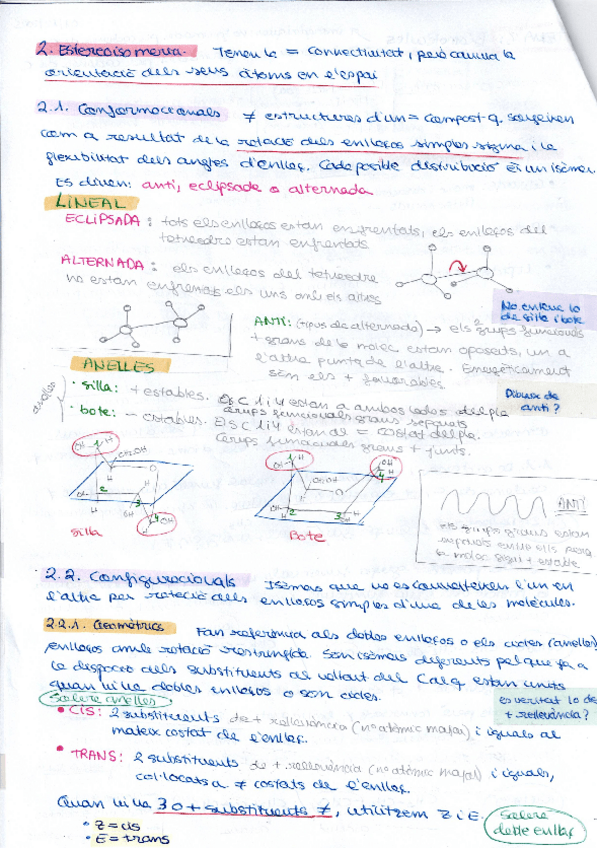 2. Estereoisomeria. Tenen la = connectivitat, però canvia la
orientació dels seus àtoms en l'espai
2.1. Conformacionals ≠ estructures d'un = compost q. sorgeixen
com a resultat de la rotació dels enllaços simples sigma i la
flexibilitat dels angles d'enllaç. Cada possible distribució és un isòmer.
Es diuen: anti, eclipsada o alternada
LINEAL
ECLIPSADA: tots els enllaços estan enfrentats, els enllaços del
tetraedre estan enfrentats
ALTERNADA: els enllaços del tetraedre
no estan enfrentats els uns amb els altres
No entenc lo
de silla i bote
ANTI: (tipus de alternada) → els 2 grups funcionals
+ grans de la molec estan oposats, un a
l'altre punta de l'altre. Energèticament
són els + favorables.
ANELLES
Dibuix de
anti?
anelles
silla: + estables. Els C 1 i 4 estan a ambos lados del pla
Grups funcionals grans separats
bote: - estables. Els C 1 i 4 estan al = costat del pla.
Grups funcionals grans + junts.
OH H CH2OH O H OH 1 2 3 4
silla
OH H CH2OH O H OH 1 2 3 4
Bote
ANTI
els grups grans estan
separats entre ells
la molec sigui + estable
2.2. Configuracionals Isòmers que no es converteixen l'un en
l'altre per rotació dels enllaços simples d'una de les molècules.
2.2.1. Geomètrics Fan referència als dobles enllaços o els cicles (anelles)
enllaços amb rotació restringida. Són isòmers diferents pel que fa a
la disposició dels substituents al voltant del C al q estan units
quan hi ha dobles enllaços o són cicles.
Sobre anelles
es veritat lo de
+ rellevància?
• CIS: 2 substituents de + rellevància (nº atòmic major) i iguals al
mateix costat de l'enllaç.
• TRANS: 2 substituents de + rellevància (nº atòmic major) i iguals,
col·locats a ≠ costats de l'enllaç.
Quan hi ha 3 o + substituents ≠, utilitzem Z i E.
• Z = cis
• E = trans
Sobre
doble enllaç